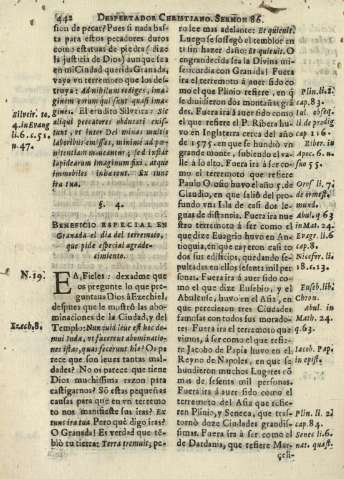 442 DESPERTADOR CHRISTIANO. SERMON 86.
sion de pecar? Pues si nada basta
para estos pecadores duros
como estatuas de piedra (dize
la justicia de Dios) aunque sea
en mi Ciudad querida Granada,
vaya vn terremoto que los destruya:
Ad nihilum rediges, imaginem
eorum qui sunt quasi imagines.
El erudito Silveira: Sic
aliqui peccatores obdurati existunt,
vt inter Dei minas multis
laboribus
immobiles habeat. Ex tunc
ira tua.
Silveir. to.
4. in Evang
li. 6. c. 51.
n. 47.
§. 4.
BENEFICIO ESPECIAL EN
Granada el dia del terremoto,
que pide especial agradecimiento.
N. 19.
EA, Fieles: dexadme que
os pregunte lo que preguntava
Dios à Ezechiel,
despues que le mostrò las abominaciones
de la Ciudad, y del
Templo: Nunquid leve est hoc domui
Iuda, vt facerent abominationes
istas, quas fecerunt hic? Os parece
que son leues tantas maldades?
No os parece que tiene
Dios muchissima razon para
castigarnos? Sõ estas pequeñas
causas para que en vn terremoto
nos manifieste su ira? Ex
tunc ira tua. Pero què digo iras?
O Granada! Es verdad que tẽblò
tu tierra: Terra tremuit, pe-
Ezech. 8.
ro lee mas adelante: Et quieuit.
Luego se sossegò el temblor en
ti sin hazer daño: Et quieuit. O
engrandecida sea la Divina misericordia
con Granada! Fuera
ira el terremoto à auer sido como
el que Plinio refiere, en q
se
Fuera ira à auer sido como
el que refiere el P. Ribera
huvo en Inglaterra cerca del año
de 1571. en que se hundiò vn
grande monte, subiendo el valle
à lo alto. Fuera ira à ser como
el terremoto que refiere
Paulo O año huvo el año 5. de
Claudio, en que saliò del profundo
vna Isla de casi dos leguas
de distancia. Fuera ira nuestro
terremoto à ser como el
que dize Euagrio huvo en Antioquia,
en que cayeron casi todos
sus edificios, quedando sepultados
en ellos sesenta mil personas.
Fuera ira à auer sido como
el que dize Eusebio, y el
Abulense, huvo en el Asia, en
que perecieron treze Ciudades
famosas con todos sus moradores.
Fuera ira el terremoto que
vimos, à ser como el que refiere
Jacobo de Papia huvo en el
Reyno de Napoles, en que se
hundieron muchos Lugares cõ
mas de sesenta mil personas.
Fuera ira à auer sido como el
terremoto del Asia que refieren
Plinio, y Seneca, que trastornò
doze Ciudades grandissimas.
Fuera ira à ser como el
de Dardania, que refiere Mar-
celi-
Plin. li. 2.
cap. 83.
Ribér. in
Apoc. 6. n.
55.
Oros. li. 7.
Abul. q 63
in Mat. 24.
Evagr. li. 6
cap. 8.
Nicefor. li.
18. c. 13.
Euseb. lib.
Chron.
Abul. in
Math. 24.
q. 63.
Iacob. Pap.
in epist.
Plin. li. 2.
cap. 84.
Senec. li. 6.
nat. quæst.